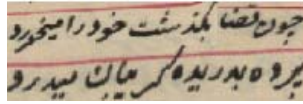 چون قضا بگذشت خود را میخورد
پرده بدریده گریبان میدرد